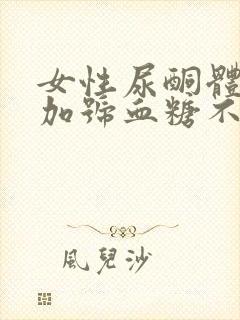 女性尿酮體
加號血糖不
風兒沙